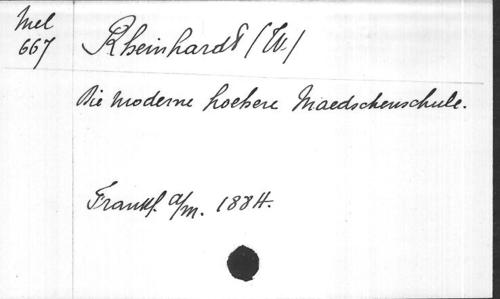 Mel
667
Rheinhardt (W.)
Die moderne hoehere Maedschenschule.
Frankf. a/m. 1884.